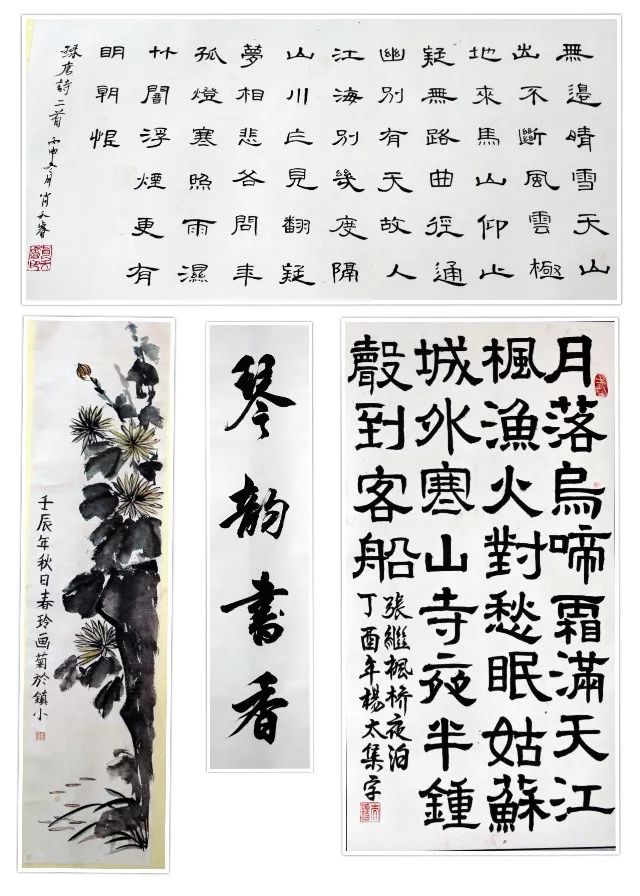 無邊晴雪天山
出不斷風雲極
地來馬山仰止
疑無路曲徑通
幽別有天故人
江海別幾度隔
山川乍見翻疑
夢相悲各問年
孤燈寒照雨濕
竹闇浮煙更有
明朝恨
錄唐詩二首 丙申冬月肖天睿
壬辰年秋日春玲画菊於鎮小
琴韵書香
月落烏啼霜滿天江
楓漁火對愁眠姑蘇
城外寒山寺夜半鍾
聲到客船
張繼楓桥夜泊
丁酉年楊太集字